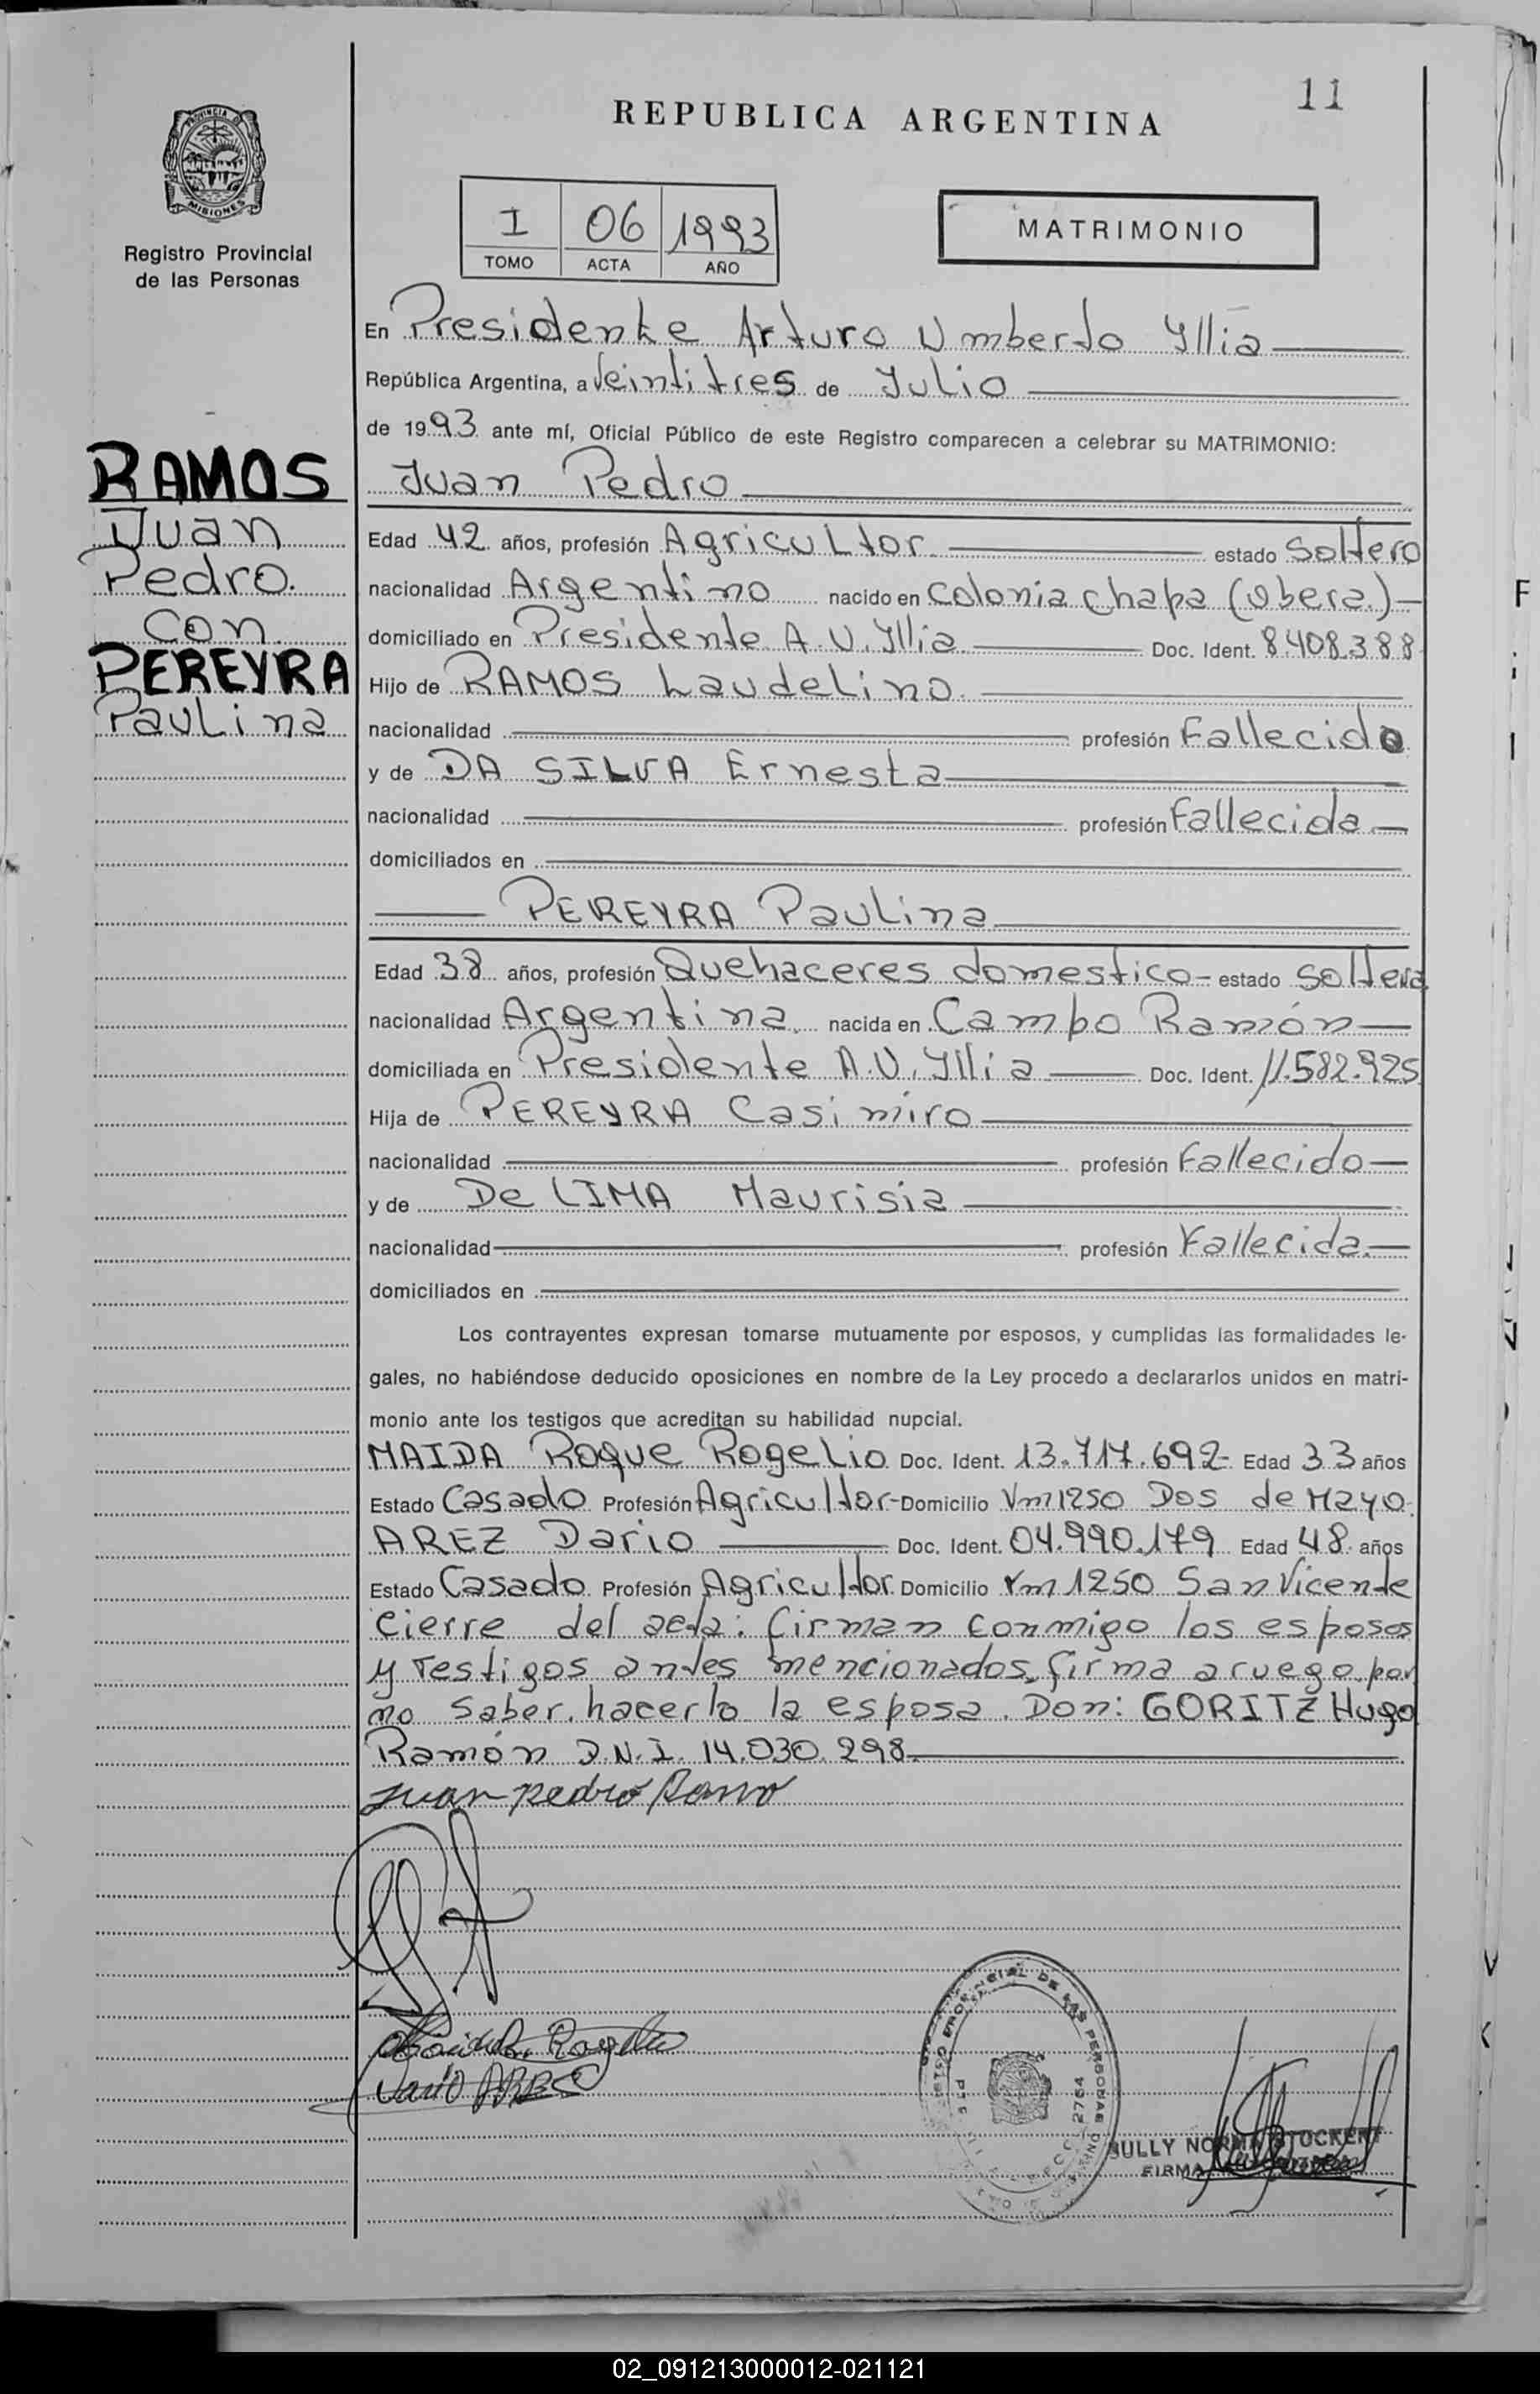 11
REPUBLICA ARGENTINA
PROVINCIA DE MISIONES
Registro Provincial
de las Personas
I 06 1993
TOMO ACTA AÑO
MATRIMONIO
En Presidente Arturo Umberto Yllia
República Argentina, a Veintitres de Julio
de 1993 ante mí, Oficial Público de este Registro comparecen a celebrar su MATRIMONIO:
RAMOS
Juan
Pedro.
Con
PEREYRA
Paulina
Juan Pedro
Edad 42 años, profesión Agricultor estado Soltero
nacionalidad Argentino nacido en Colonia Chapa (Obera.)
domiciliado en Presidente A.U. Yllia Doc. Ident. 8.408.388
Hijo de RAMOS Laudelino
nacionalidad profesión Fallecido
y de DA SILVA Ernesta
nacionalidad profesión Fallecida
domiciliados en
PEREYRA Paulina
Edad 38 años, profesión Quehaceres domestico estado Soltera
nacionalidad Argentina nacida en Campo Ramón
domiciliada en Presidente A.U. Yllia Doc. Ident. 11.582.925
Hija de PEREYRA Casimiro
nacionalidad profesión Fallecido
y de De LIMA Maurisia
nacionalidad profesión Fallecida
domiciliados en
Los contrayentes expresan tomarse mutuamente por esposos, y cumplidas las formalidades le-
gales, no habiéndose deducido oposiciones en nombre de la Ley procedo a declararlos unidos en matri-
monio ante los testigos que acreditan su habilidad nupcial.
MAIDA Roque Rogelio Doc. Ident. 13.717.692 Edad 33 años
Estado Casado Profesión Agricultor Domicilio Km 1250 Dos de Mayo
AREZ Dario Doc. Ident. 04.990.179 Edad 48 años
Estado Casado Profesión Agricultor Domicilio Km 1250 San Vicente
Cierre del acta: firman conmigo los esposos
y testigos antes mencionados, firma a ruego por
no saber hacerlo la esposa. Don: GORITZ Hugo
Ramón D.N.I. 14.030.298
Juan Pedro Ramo
Dario AREZ
2764
SULLY NORMA STOCKERT
FIRMA
02_091213000012-021121